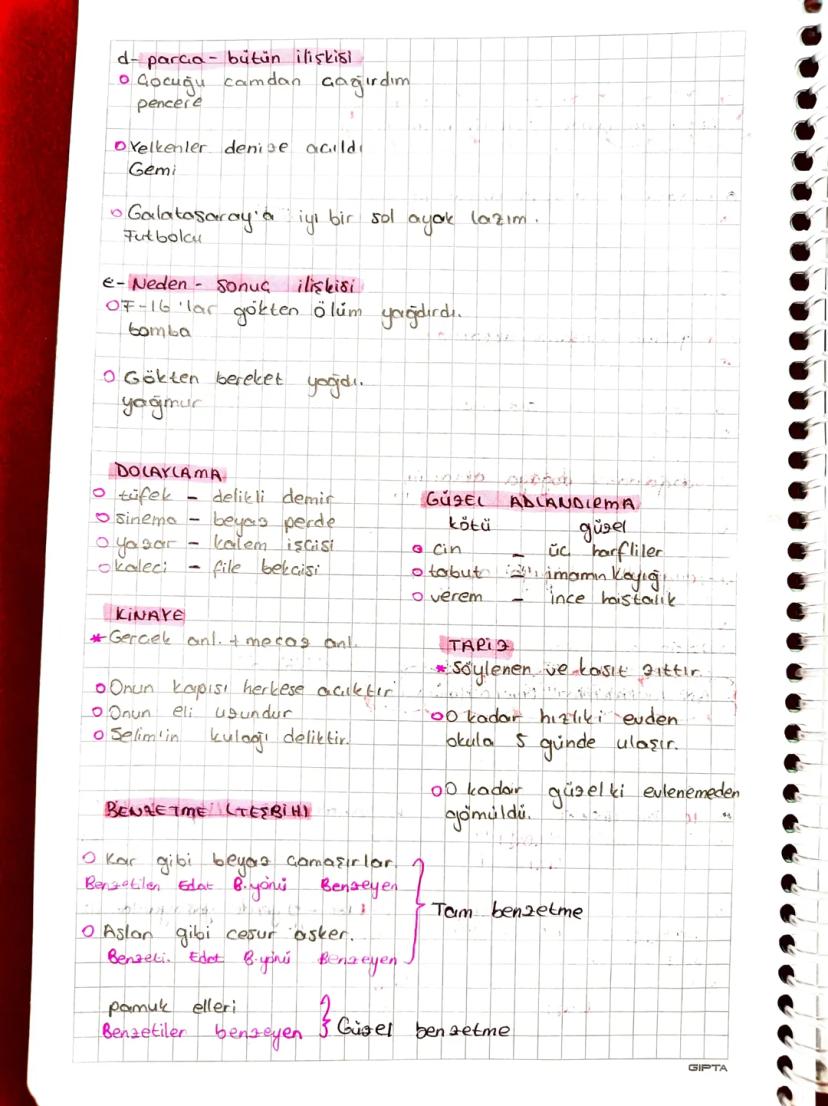 d- parça - bütün ilişkisi
Çocuğu camdan çağırdım
pencere
Yelkenler denize açıldı
Gemi
Galatasaray'a iyi bir sol ayak lazım.
Futbolcu
e- Neden - sonuç ilişkisi
F-16'lar gökten ölüm yağdırdı.
bomba
Gökten bereket yağdı.
yağmur
DOLAYLAMA
tüfek - delikli demir
sinema - beyaz perde
yazar - kalem işçisi
kaleci - file bekçisi
GÜZEL ADLANDIRMA
kötü güzel
cin - üç harfliler
tabut - imamın kayığı
verem - ince hastalık
KİNAYE
*Gerçek anl. + mecaz anl.
Onun kapısı herkese açıktır
Onun eli uzundur
Selim'in kulağı deliktir.
TARİZ
*Söylenen ve kasıt zıttır.
O kadar hızlıki evden
okula 5 günde ulaşır.
O kadar güzel ki evlenemeden
gömüldü.
BENZETME (TEŞBİH)
Kar gibi beyaz çamaşırlar.
Benzetilen Edat B.yönü Benzeyen
Aslan gibi cesur asker.
Benzeti. Edat B.yönü Benzeyen
Tam benzetme
pamuk elleri
Benzetiler benzeyen
Güzel benzetme
GIPTA